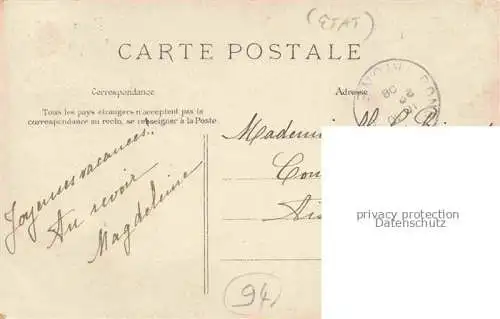 (ETAT)
CARTE POSTALE
Correspondance
Adresse
Tous les pays étrangers n'acceptent pas la
correspondance au recto, se renseigner à la Poste.
Joyeuses vacances!
Au revoir
Magdeleine
Mademoiselle
privacy protection
Datenschutz
94